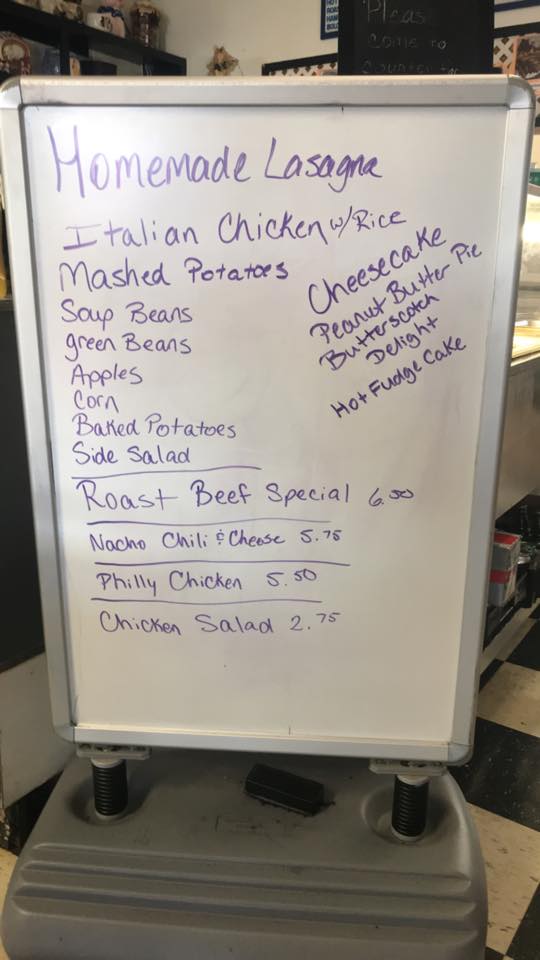 Pleas
come to
Homemade Lasagna
Italian Chicken w/ Rice
Mashed Potatoes
Soup Beans
green Beans
Apples
Corn
Baked Potatoes
Side Salad
Cheesecake
Peanut Butter Pie
Butterscotch
Delight
Hot Fudge Cake
Roast Beef Special 6.50
Nacho Chili & Cheese 5.75
Philly Chicken 5.50
Chicken Salad 2.75